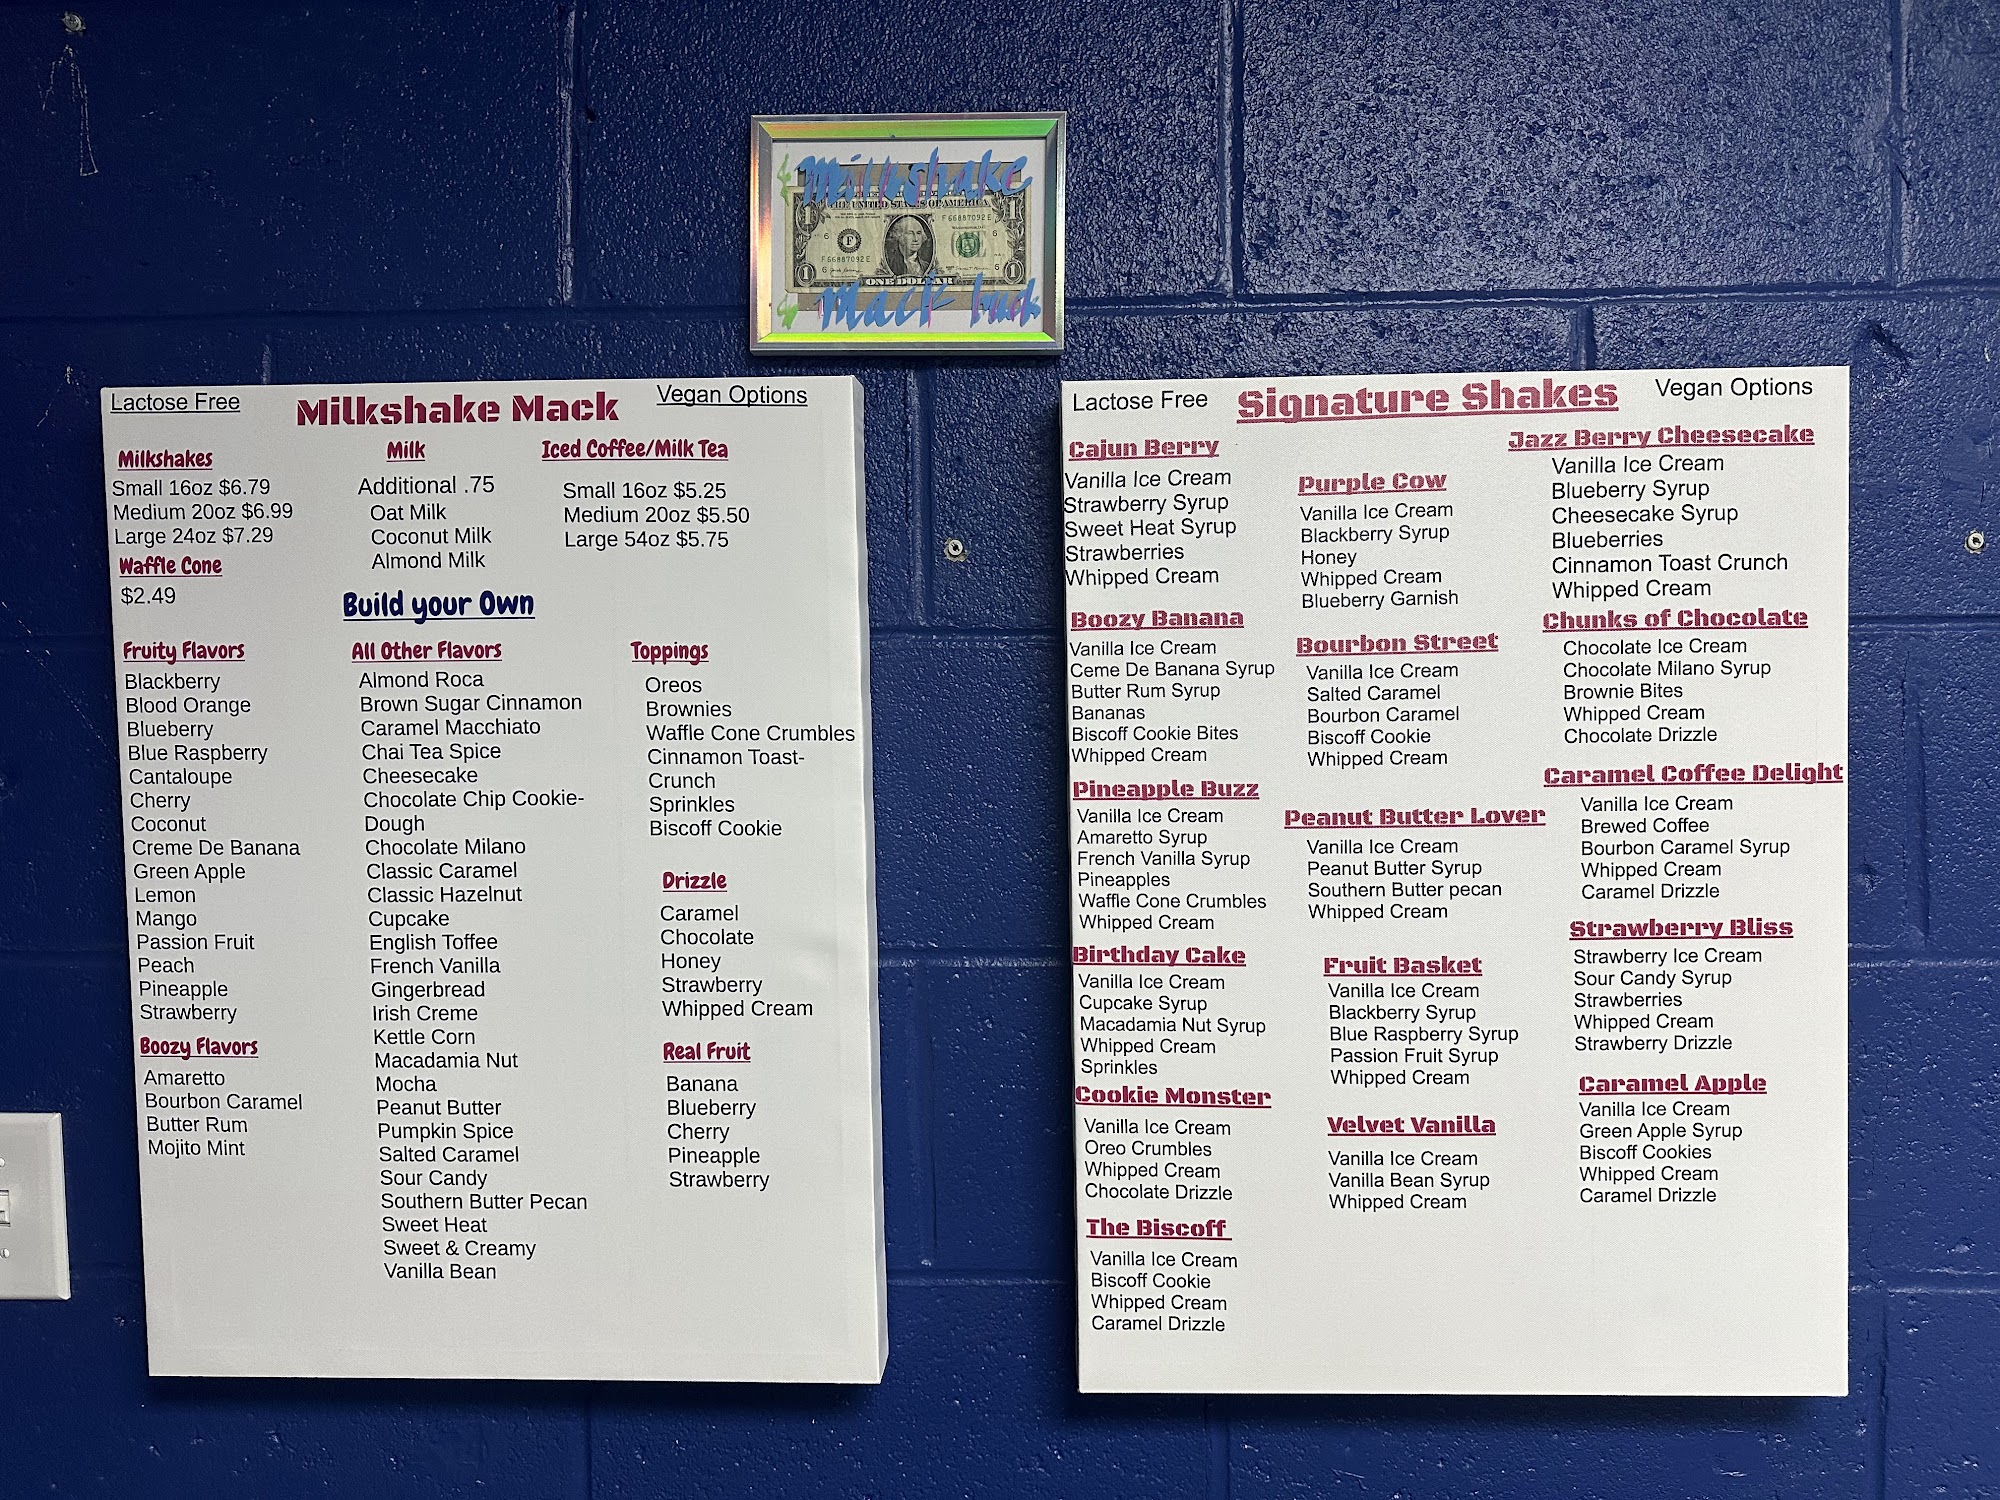 Milkshake
THE UNITED STATES OF AMERICA
F 66887092 E
F
F 66887092 E
ONE DOLLAR
Mack buck
Lactose Free
Milkshake Mack
Vegan Options
Milkshakes
Small 16oz $6.79
Medium 20oz $6.99
Large 24oz $7.29
Waffle Cone
$2.49
Milk
Additional .75
Oat Milk
Coconut Milk
Almond Milk
Iced Coffee/Milk Tea
Small 16oz $5.25
Medium 20oz $5.50
Large 54oz $5.75
Build your Own
Fruity Flavors
Blackberry
Blood Orange
Blueberry
Blue Raspberry
Cantaloupe
Cherry
Coconut
Creme De Banana
Green Apple
Lemon
Mango
Passion Fruit
Peach
Pineapple
Strawberry
Boozy Flavors
Amaretto
Bourbon Caramel
Butter Rum
Mojito Mint
All Other Flavors
Almond Roca
Brown Sugar Cinnamon
Caramel Macchiato
Chai Tea Spice
Cheesecake
Chocolate Chip Cookie-
Dough
Chocolate Milano
Classic Caramel
Classic Hazelnut
Cupcake
English Toffee
French Vanilla
Gingerbread
Irish Creme
Kettle Corn
Macadamia Nut
Mocha
Peanut Butter
Pumpkin Spice
Salted Caramel
Sour Candy
Southern Butter Pecan
Sweet Heat
Sweet & Creamy
Vanilla Bean
Toppings
Oreos
Brownies
Waffle Cone Crumbles
Cinnamon Toast-
Crunch
Sprinkles
Biscoff Cookie
Drizzle
Caramel
Chocolate
Honey
Strawberry
Whipped Cream
Real Fruit
Banana
Blueberry
Cherry
Pineapple
Strawberry
Lactose Free
Signature Shakes
Vegan Options
Cajun Berry
Vanilla Ice Cream
Strawberry Syrup
Sweet Heat Syrup
Strawberries
Whipped Cream
Boozy Banana
Vanilla Ice Cream
Ceme De Banana Syrup
Butter Rum Syrup
Bananas
Biscoff Cookie Bites
Whipped Cream
Pineapple Buzz
Vanilla Ice Cream
Amaretto Syrup
French Vanilla Syrup
Pineapples
Waffle Cone Crumbles
Whipped Cream
Birthday Cake
Vanilla Ice Cream
Cupcake Syrup
Macadamia Nut Syrup
Whipped Cream
Sprinkles
Cookie Monster
Vanilla Ice Cream
Oreo Crumbles
Whipped Cream
Chocolate Drizzle
The Biscoff
Vanilla Ice Cream
Biscoff Cookie
Whipped Cream
Caramel Drizzle
Purple Cow
Vanilla Ice Cream
Blackberry Syrup
Honey
Whipped Cream
Blueberry Garnish
Bourbon Street
Vanilla Ice Cream
Salted Caramel
Bourbon Caramel
Biscoff Cookie
Whipped Cream
Peanut Butter Lover
Vanilla Ice Cream
Peanut Butter Syrup
Southern Butter pecan
Whipped Cream
Fruit Basket
Vanilla Ice Cream
Blackberry Syrup
Blue Raspberry Syrup
Passion Fruit Syrup
Whipped Cream
Velvet Vanilla
Vanilla Ice Cream
Vanilla Bean Syrup
Whipped Cream
Jazz Berry Cheesecake
Vanilla Ice Cream
Blueberry Syrup
Cheesecake Syrup
Blueberries
Cinnamon Toast Crunch
Whipped Cream
Chunks of Chocolate
Chocolate Ice Cream
Chocolate Milano Syrup
Brownie Bites
Whipped Cream
Chocolate Drizzle
Caramel Coffee Delight
Vanilla Ice Cream
Brewed Coffee
Bourbon Caramel Syrup
Whipped Cream
Caramel Drizzle
Strawberry Bliss
Strawberry Ice Cream
Sour Candy Syrup
Strawberries
Whipped Cream
Strawberry Drizzle
Caramel Apple
Vanilla Ice Cream
Green Apple Syrup
Biscoff Cookies
Whipped Cream
Caramel Drizzle